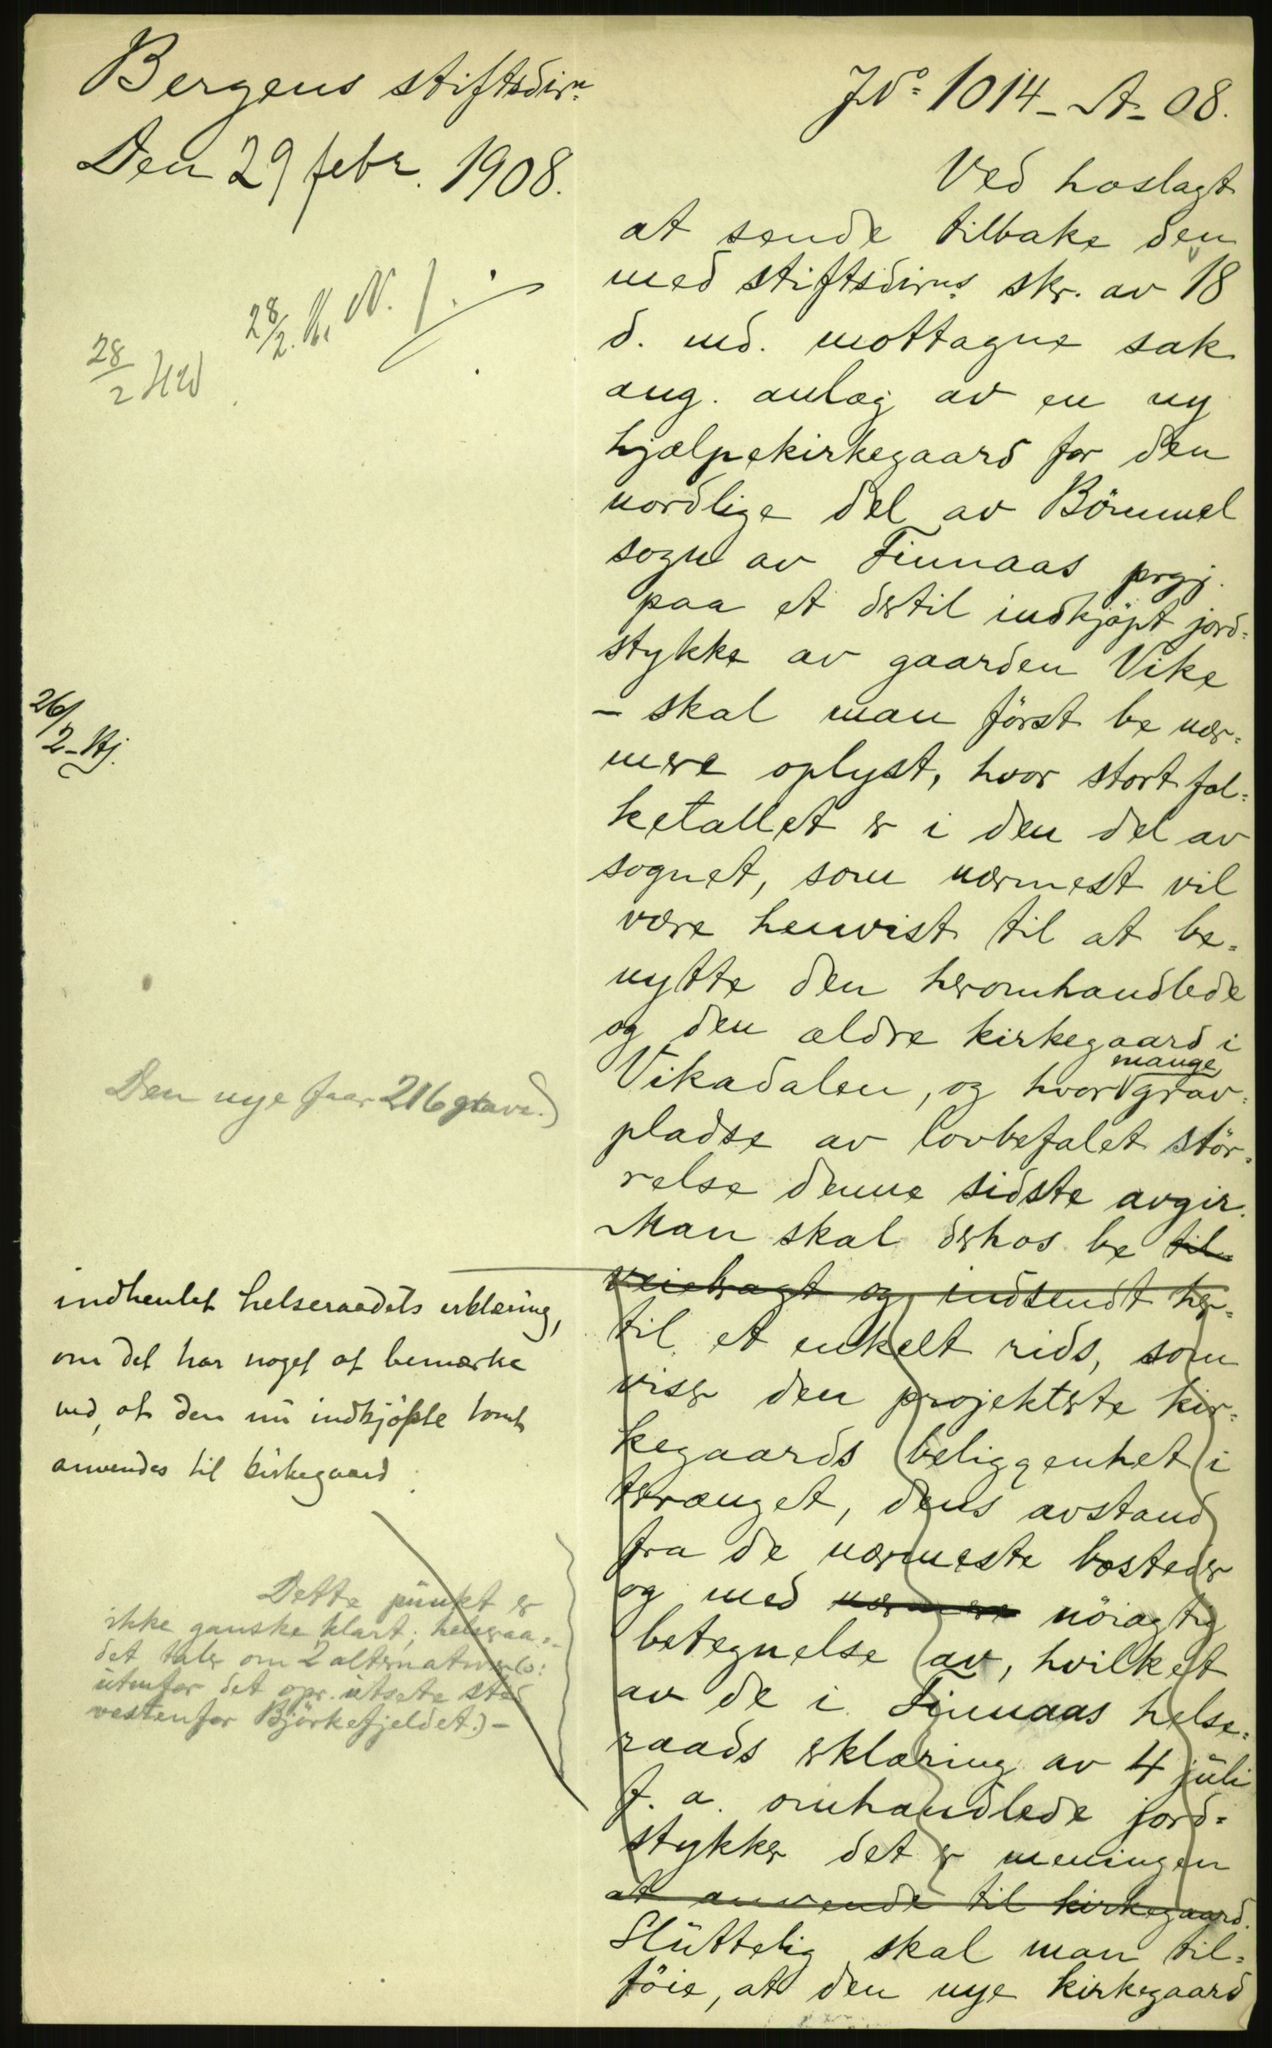 Bergens stiftsdirn
Den 29 febr. 1908.
JNo 1014 - A - 08.
28/2
28/2
26/2
Ved hoslagt
at sende tilbake den
med stiftsdirns skr. av 18
d. md. mottagne sak
ang. anlæg av en ny
hjælpekirkegaard for den
nordlige del av Bömmel
sogn av Finnaas prgj.
paa et dertil indkjöpt jord-
stykke av gaarden Vike
- skal man först be nær-
mere oplyst, hvor stort fol-
ketallet er i den del av
sognet, som nærmest vil
være henvist til at be-
nytte den heromhandlede
og den ældre kirkegaard i
Vikadalen, og hvor mange grav-
pladse av lovbefalet stör-
relse denne sidste avgir.
Man skal derhos be til-
veiebragt og indsendt her-
til et enkelt rids, som
viser den projekterte kir-
kegaards beliggenhet i
terrænget, dens avstand
fra de nærmeste bosteder
og med nærmere nöiagtig
betegnelse av, hvilket
av de i Finnaas helse-
raads erklæring av 4 juli
f. a. omhandlede jord-
stykker det er meningen
at anvende til kirkegaard.
Sluttelig skal man til-
föie, at den nye kirkegaard
Den nye faar 216 grave.)
indhentet helseraadets erklæring,
om det har noget at bemærke
ved, at den nu indkjöpte tomt
anvendes til kirkegaard
Dette punkt er
ikke ganske klart; helseraa-
det taler om 2 alternativer
utenfor det opr. utsete sted
vestenfor Björkefjeldet.) -